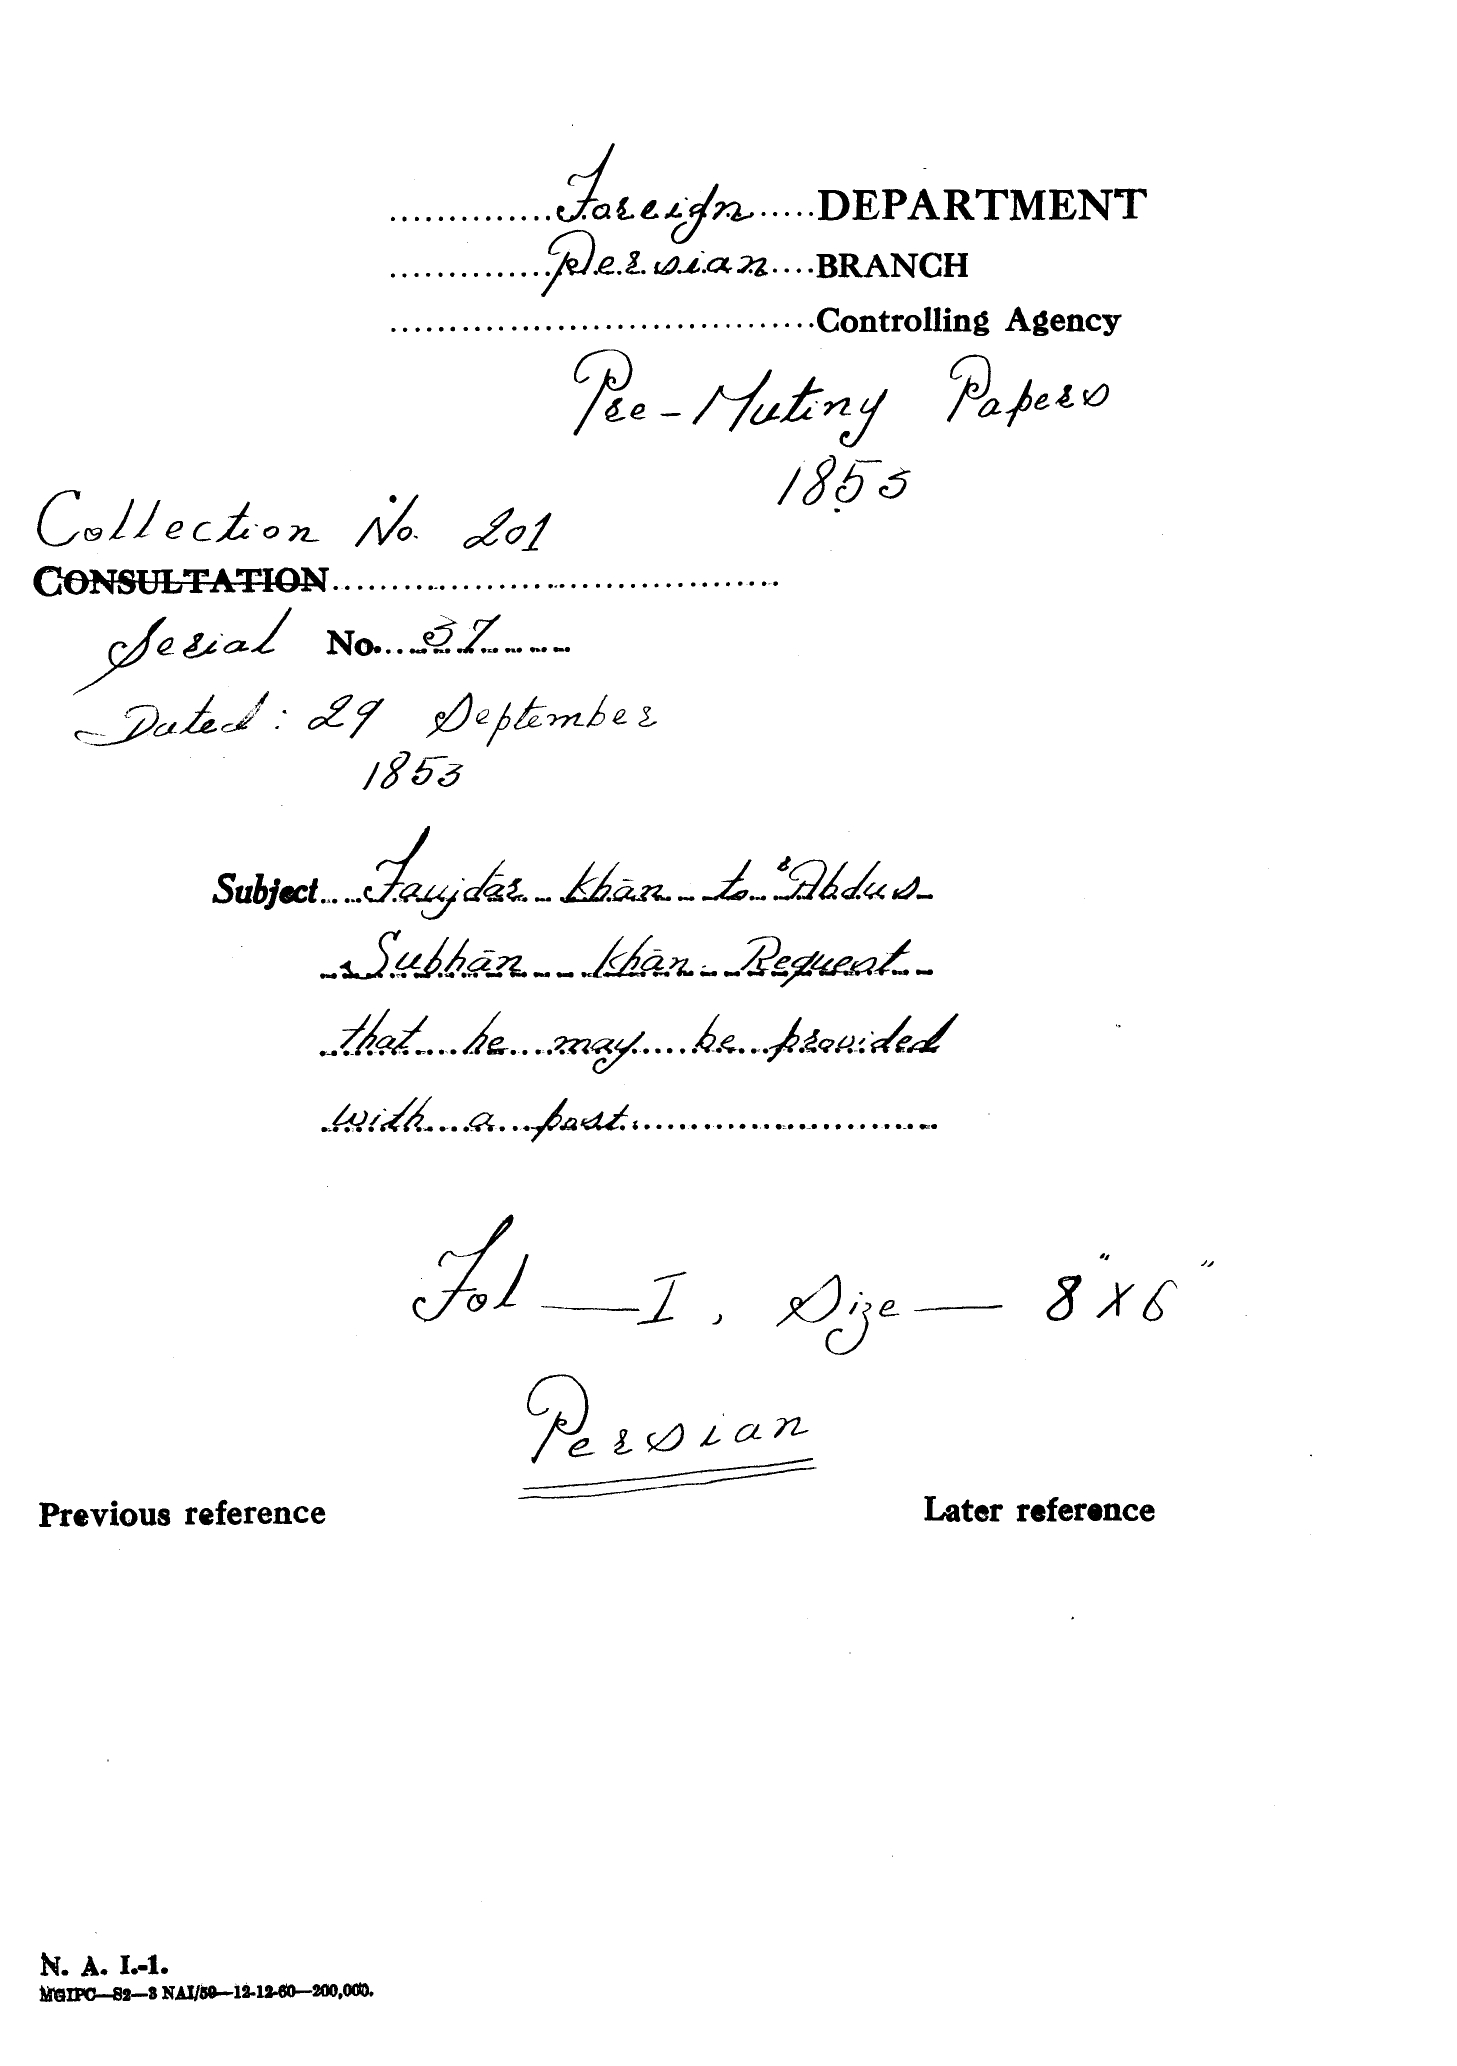 Foreign DEPARTMENT
Persian BRANCH
Controlling Agency
Pre-Mutiny Papers
1853
Collection No. 201
CONSULTATION
Serial No. 37
Dated: 29 September
1853
Subject Faujdār Khān to 'Abdus
Subhān Khān Request
that he may be provided
with a post.
Fol — I, Size — 8" X 6"
Persian
Previous reference Later reference
N. A. I.-1.
MGIPC—S2—3 NAI/59—12-12-60—200,000.